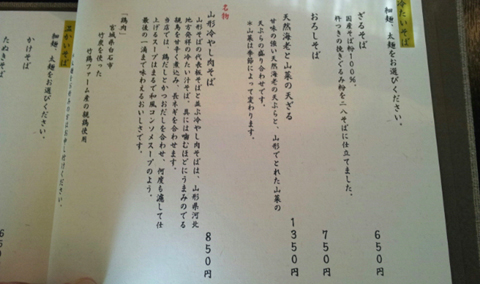 冷たいそば
細麺、太麺をお選びください。
ざるそば
国産そば粉100%。
杵つきの挽きぐるみ粉を二八そばに仕立てました。
650円
おろしそば
750円
天然海老と山菜の天ざる
甘味の強い天然海老の天ぷらと、山形でとれた山菜の
天ぷらの盛り合わせです。
※山菜は季節によって変わります。
1350円
名物
山形冷やし肉そば
850円
山形そばの代表板そばと並ぶ冷やし肉そばは、山形県河北
地方発祥の冷たい汁そば。具には噛むほどにうまみのでる
親鳥を甘辛く煮込み、長ネギを合わせます。
当店では、鶏だしとかつおだしを合わせ、何度も濾して仕
上げるスープはまるで和風コンソメスープのよう。
最後の一滴まで味わえるおいしさです。
「鶏肉」
宮城県白石市
竹炭を使った
竹鶏ファーム産の親鶏使用
温かいそば
細麺、太麺をお選びください。
かけそば
たぬきそば